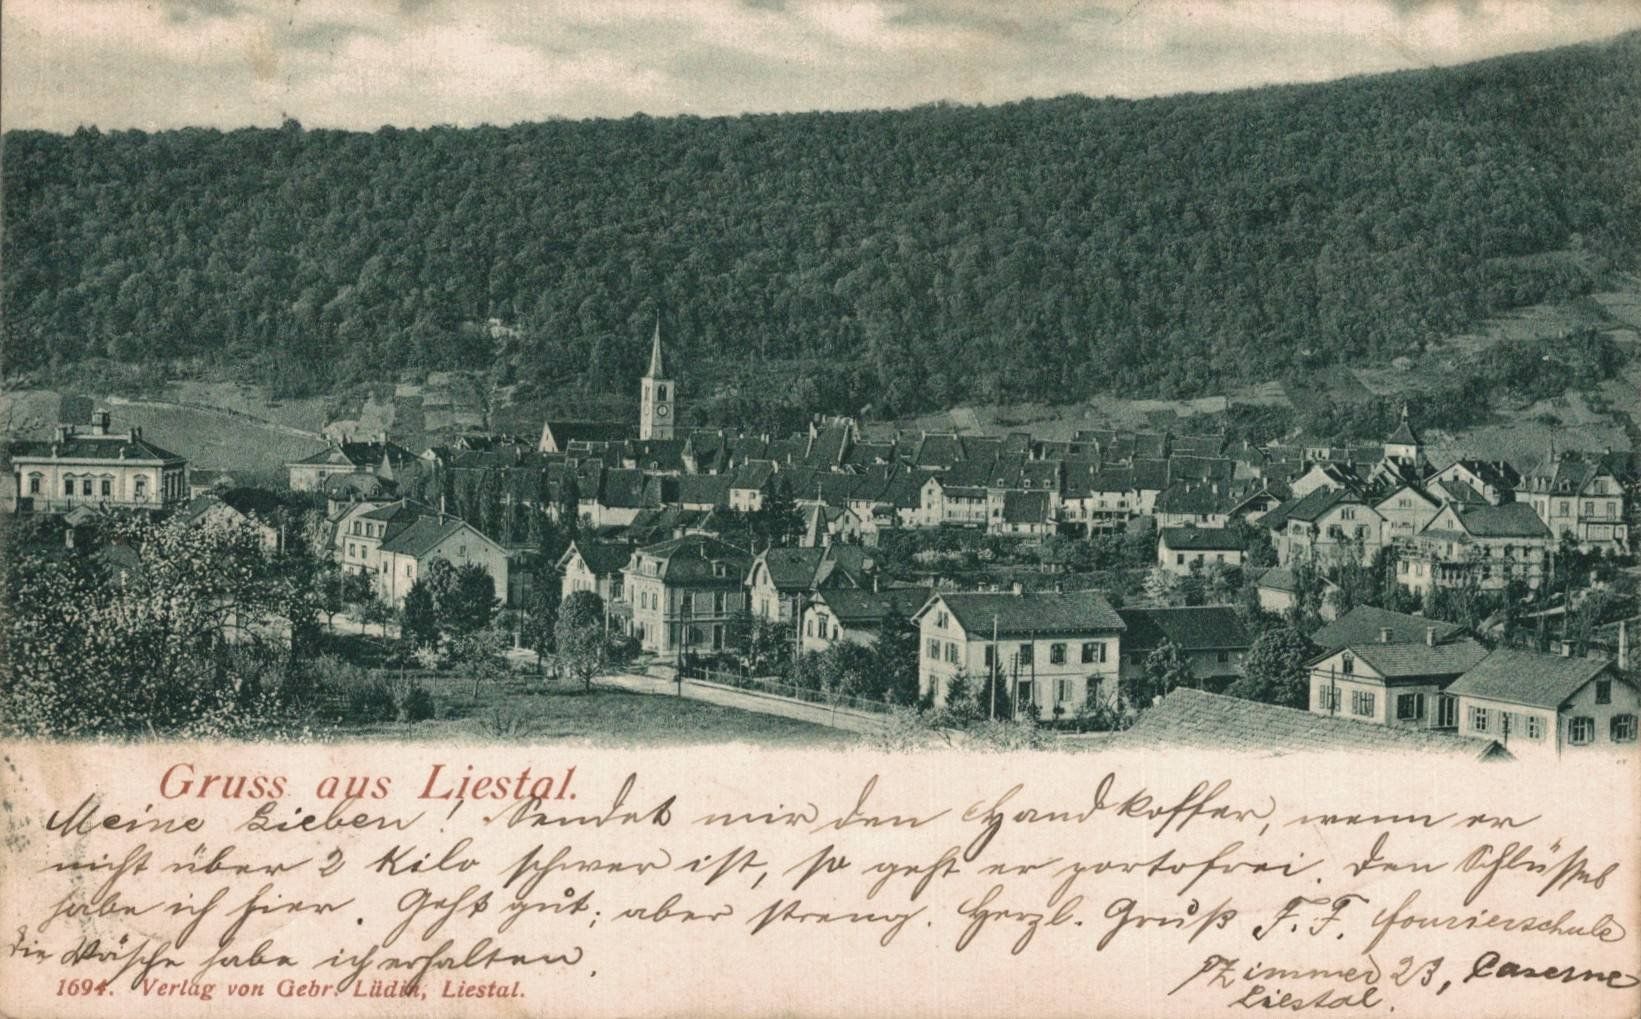 Gruss aus Liestal.
Meine Lieben! Sendet mir den Handkoffer, wenn er
nicht über 2 Kilo schwer ist, so geht er portofrei. Den Schlüssel
habe ich hier. Geht gut; aber streng. Herzl. Gruß F. F. Fourierschule
Die Wäsche habe ich erhalten.
Zimmer 23, Caserne
Liestal.
1694. Verlag von Gebr. Lüdin, Liestal.